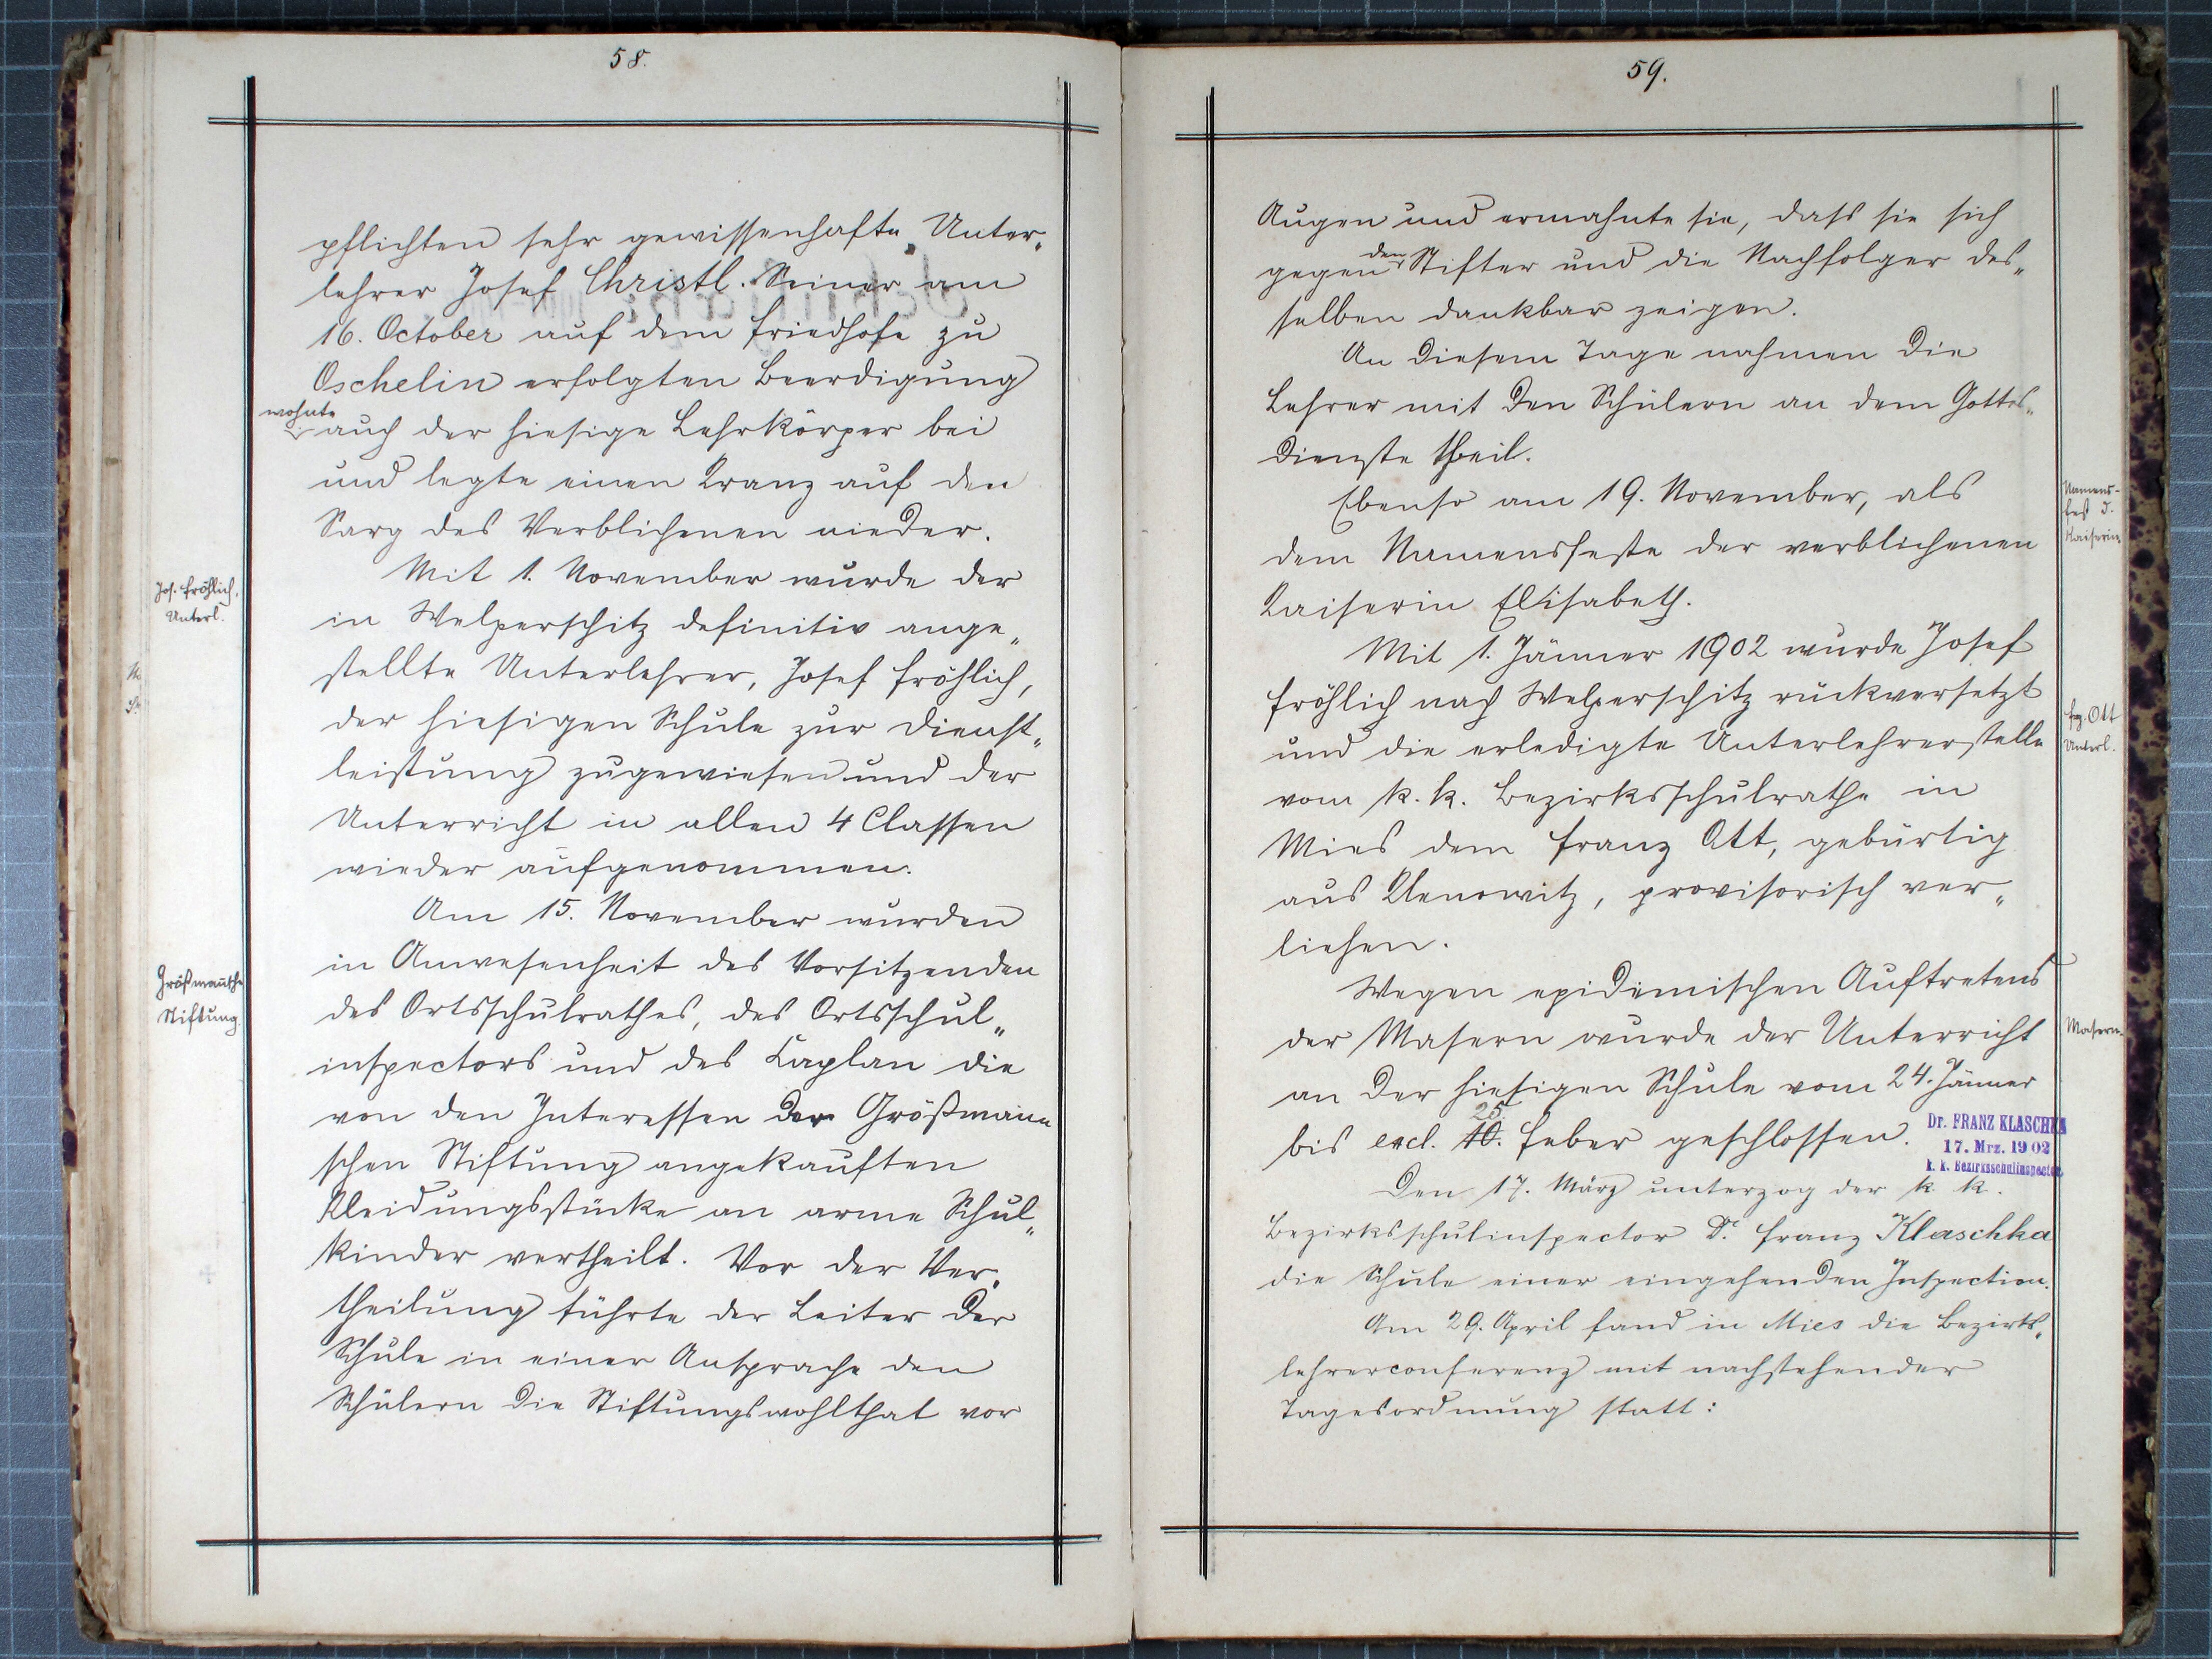 58.
pflichten sehr gewissenhafte Unter„
lehrer Josef Christl. Seiner am
16. October auf dem Friedhofe zu
Oschelin erfolgten Beerdigung
wohnte
auch der hiesige Lehrkörper bei
und legte einen Kranz auf den
Sarg des Verblichenen nieder.
Jos. Fröhlich,
Unterl.
Mit 1. November wurde der
in Welperschitz definitiv ange„
stellte Unterlehrer, Josef Fröhlich,
der hiesigen Schule zur Dienst„
leistung zugewiesen und der
Unterricht in allen 4 Classen
wieder aufgenommen.
Am 15. November wurden
Größmann'sche
Stiftung.
in Anwesenheit des Vorsitzenden
des Ortsschulrathes, des Ortsschul„
inspectors und des Caplan die
von den Interessen der Größmann
schen Stiftung angekauften
Kleidungsstücke an arme Schul„
kinder vertheilt. Vor der Ver„
theilung führte der Leiter der
Schule in einer Ansprache den
Schülern die Stiftungswohlthat vor
59.
Augen und ermahnte sie, dass sie sich
gegen den Stifter und die Nachfolger des„
selben dankbar zeigen.
An diesem Tage nahmen die
Lehrer mit den Schülern an dem Gottes„
dienste theil.
Namens-
fest d.
Kaiserin.
Ebenso am 19. November, als
dem Namensfeste der verblichenen
Kaiserin Elisabeth.
Mit 1. Jänner 1902 wurde Josef
Fröhlich nach Welperschitz rückversetzt
Frz. Ott
Unterl.
und die erledigte Unterlehrerstelle
vom k. k. Bezirksschulrathe in
Mies dem Franz Ott, gebürtig
aus Ulenowitz, provisorisch ver„
liehen.
Wegen epidemischen Auftretens
Masern.
der Masern wurde der Unterricht
an der hiesigen Schule vom 24. Jänner
bis excl. 10. 25. Feber geschlossen.
Dr. FRANZ KLASCHKA
17. Mrz. 1902
k. k. Bezirksschulinspector.
Den 17. März unterzog der k. k.
Bezirksschulinspector Dr. Franz Klaschka
die Schule einer eingehenden Inspection.
Am 29. April fand in Mies die Bezirks„
lehrerconferenz mit nachstehender
Tagesordnung statt: